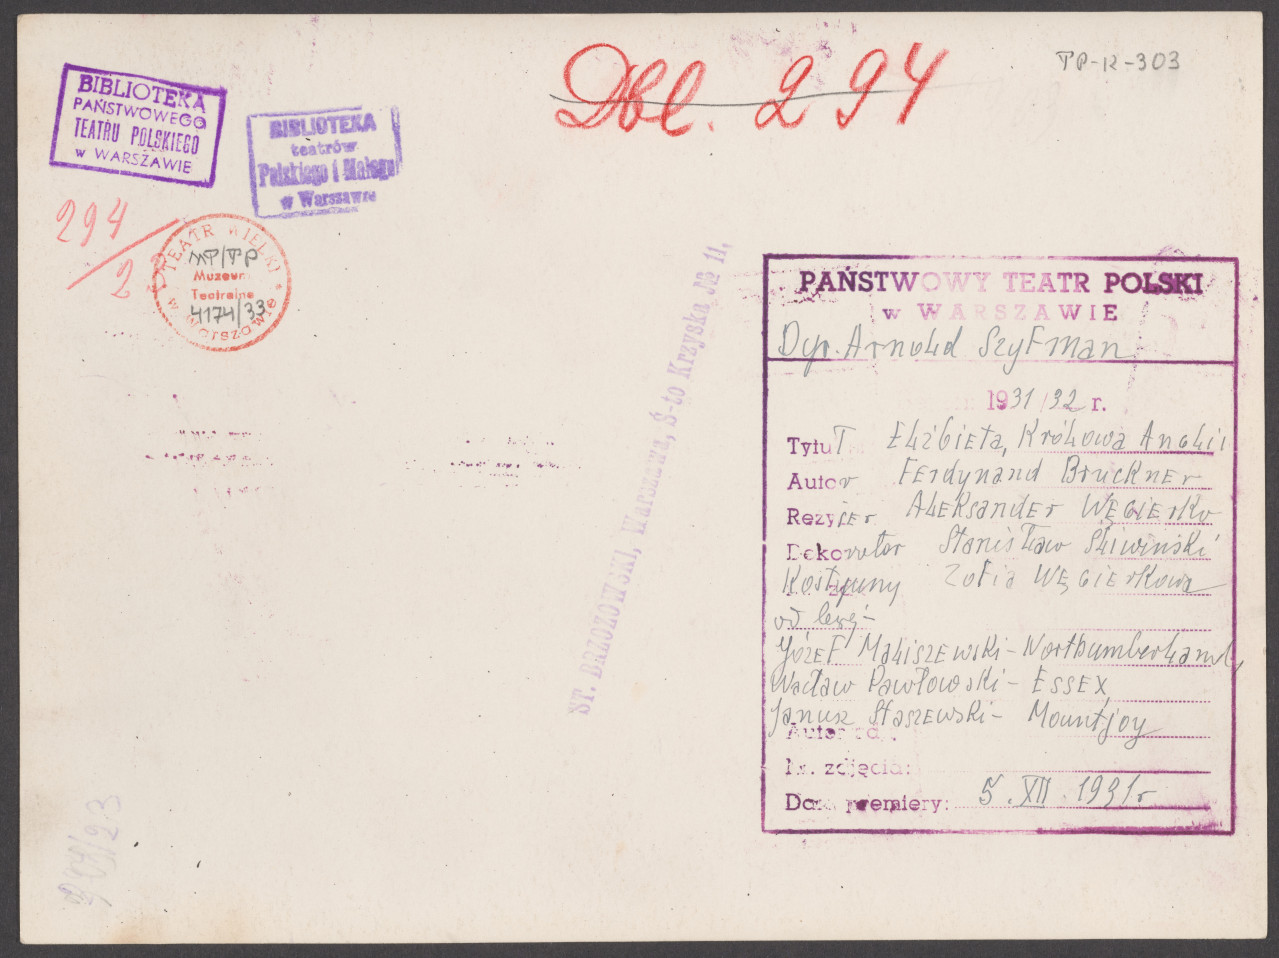 Dbl. 294
TP-R-303
BIBLIOTEKA
PAŃSTWOWEGO
TEATRU POLSKIEGO
w WARSZAWIE
BIBLIOTEKA
teatrów
Polskiego i Małego
w Warszawie
294/2
TEATR WIELKI
MT/TP
Muzeum
Teatralne
4174/33
w Warszawie
ST. BRZOZOWSKI, Warszawa, Ś-to Krzyska № 11.
PAŃSTWOWY TEATR POLSKI
w WARSZAWIE
Dyr. Arnold Szyfman
1931/32 r.
Tytuł Elżbieta, Królowa Anglii
Autor Ferdynand Bruckner
Reżyser Aleksander Węgierko
Dekorator Stanisław Śliwiński
Kostjumy Zofia Węgierkowa
od lewej-
Józef Maliszewski - Northumberland,
Wacław Pawłowski - Essex,
Janusz Staszewski - Mountjoy
Nr. zdjęcia:
Data premiery: 5. XII. 1931 r